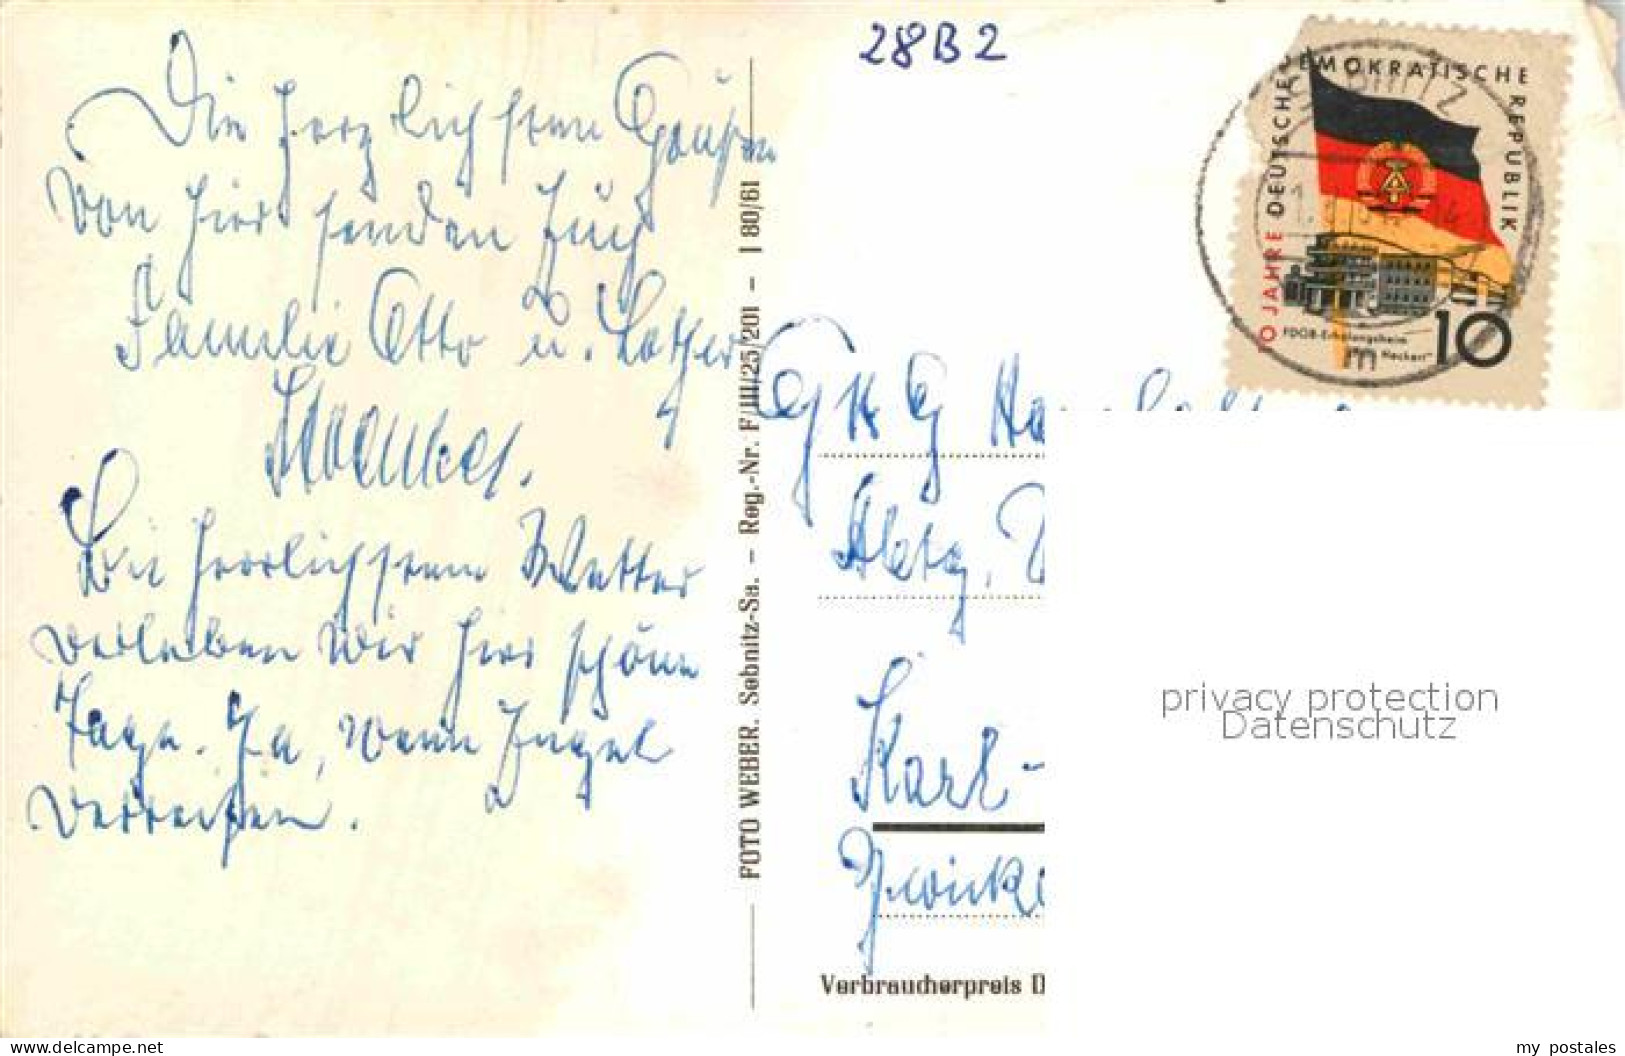 28B2
Die herzlichsten Grüße
von hier senden Euch
Familie Otto u. Lothar
Bei herrlichstem Wetter
verleben wir hier schöne
Tage. Ja, wenn Engel
verreisen.
FOTO WEBER. Sebnitz-Sa. – Reg.-Nr. F/III/25/201 – I 80/61
10 JAHRE DEUTSCHE DEMOKRATISCHE REPUBLIK
FDGB-Erholungsheim
Heckert"
10
m
GHG
Abtg.
Karl-
Zwick
Verbraucherpreis D
privacy protection
Datenschutz
www.delcampe.net
my_postales